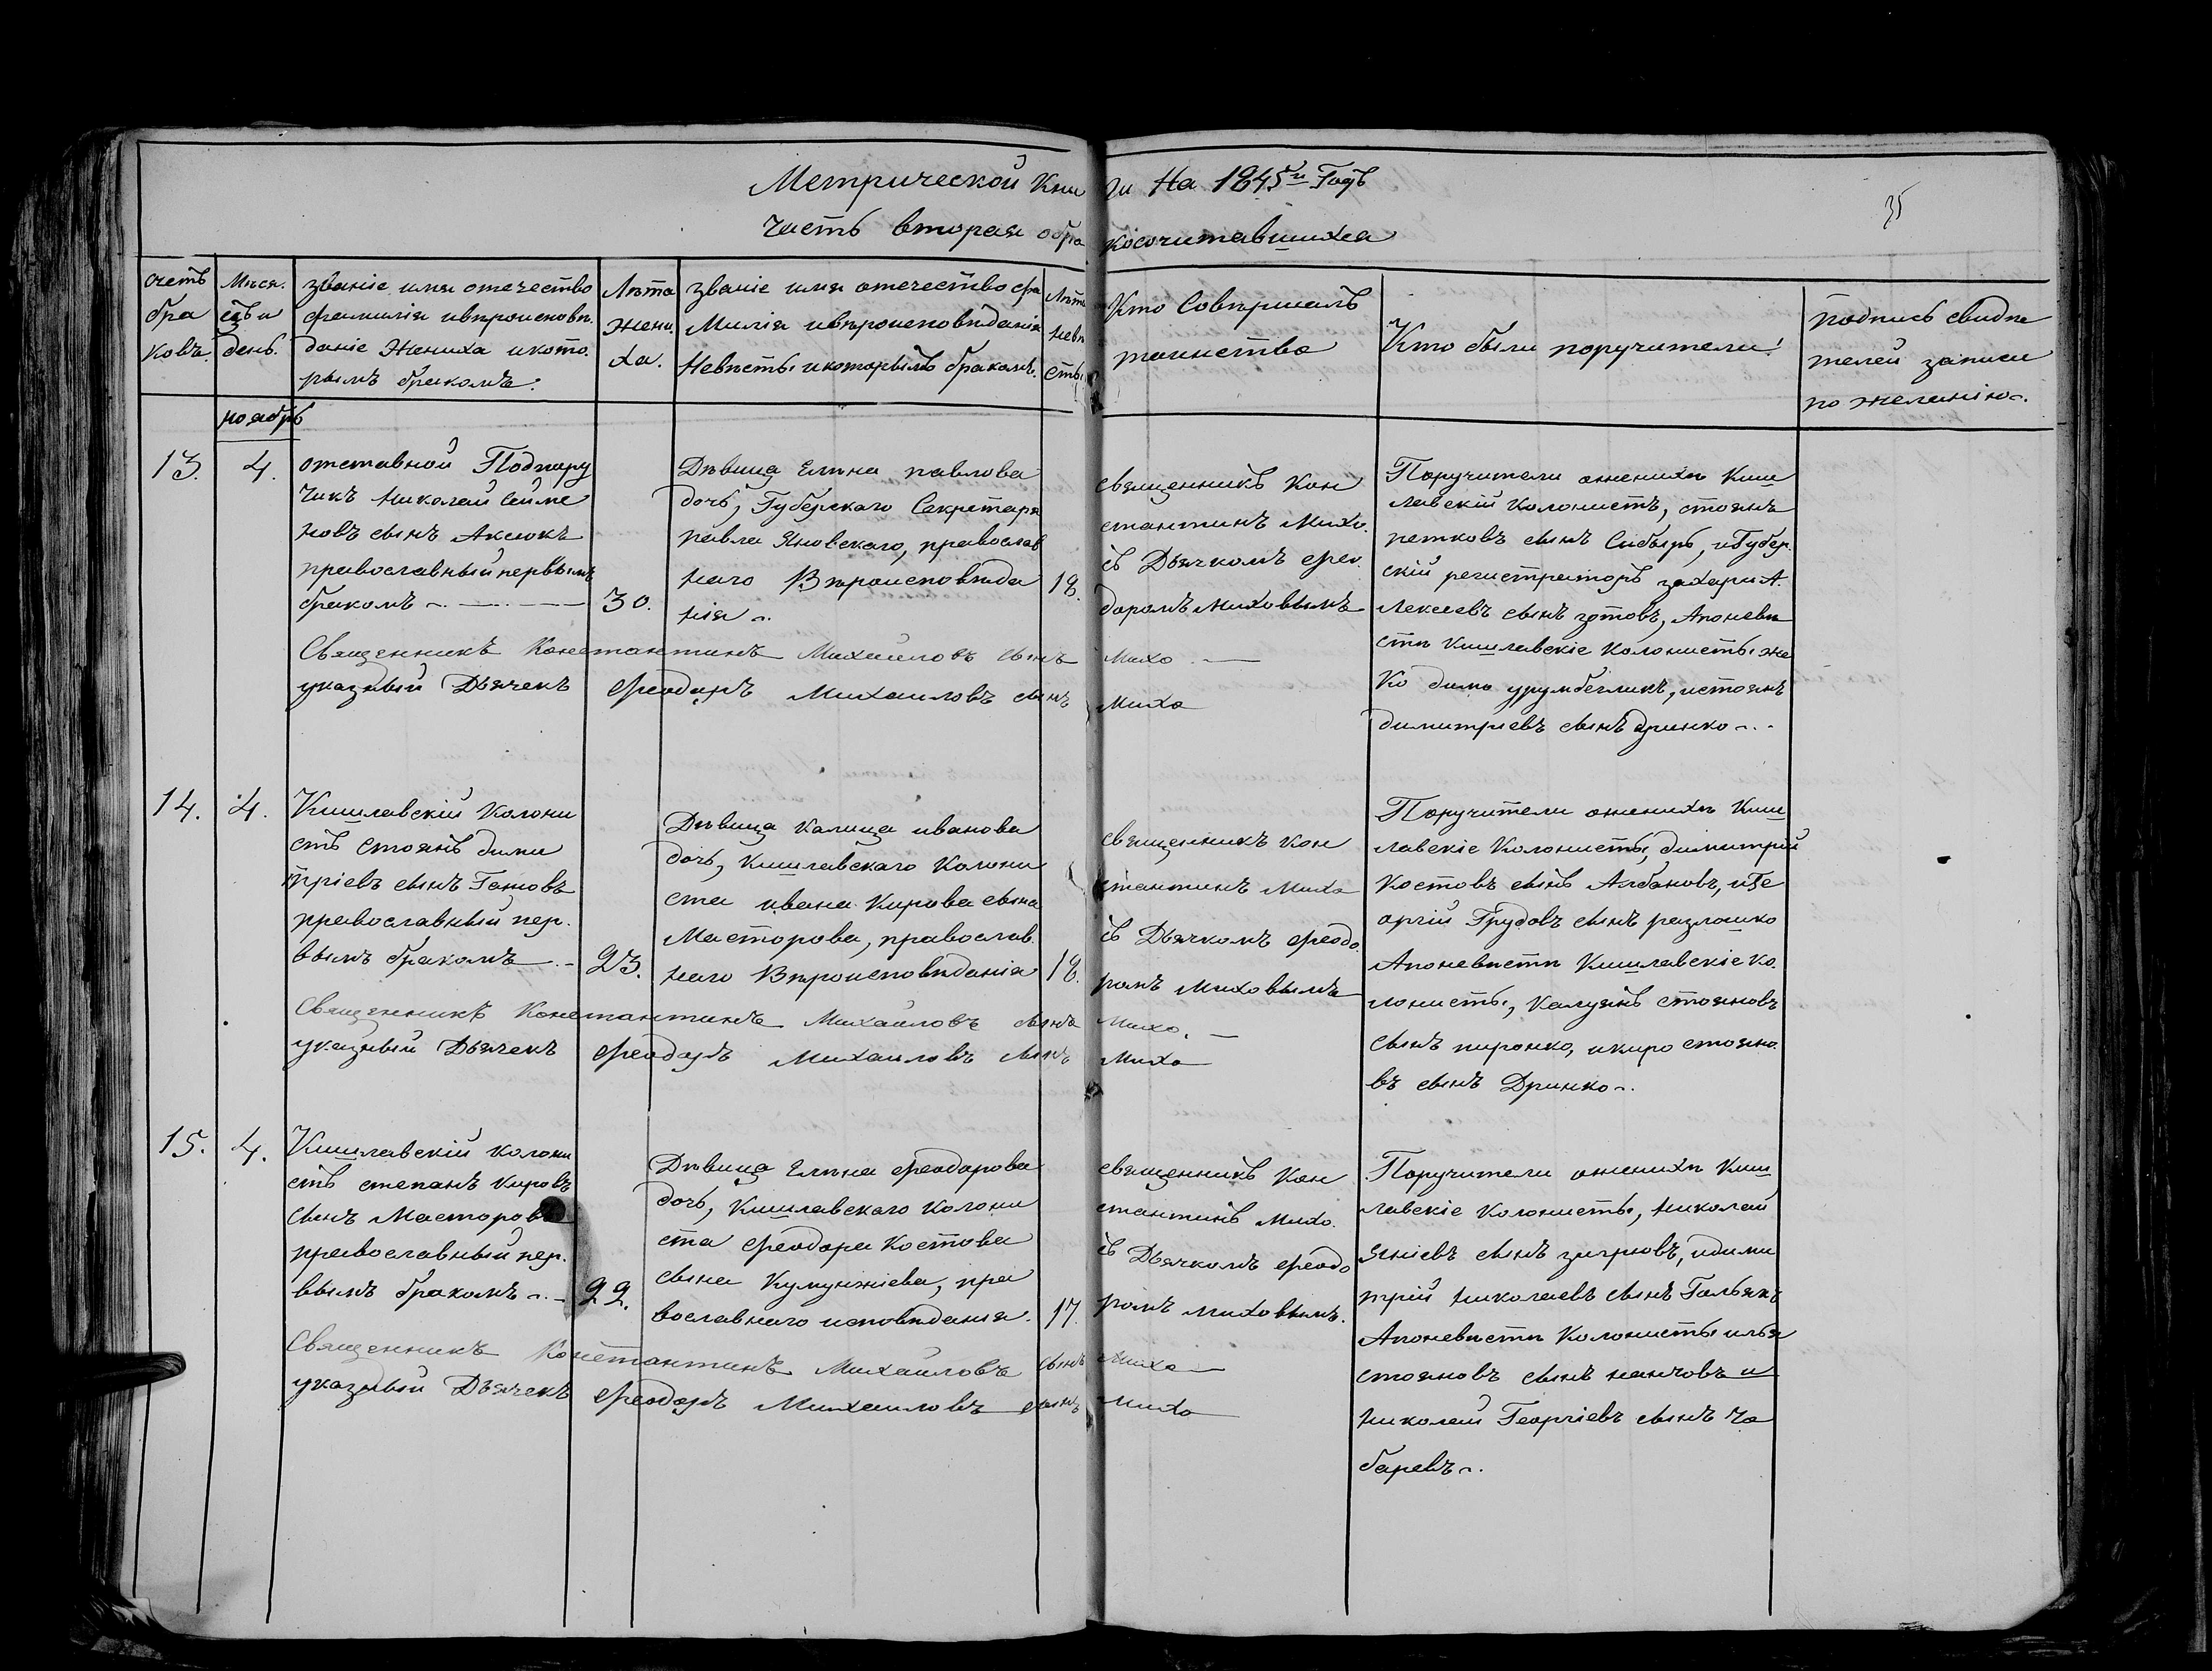 Метрической Книги На 1845й Годъ
35
Часть вторая обракосочитавшихся
счетъ браковъ.
Мѣсяцъ и день.
званіе имя отечество
фамилія ивѣроисповѣ
даніе Жениха икото
рымъ бракомъ.
Лѣта
жени
ха.
званіе имя отечество фа
Милія ивѣроисповѣданія
Невѣсты икоторымъ бракомъ.
Лѣта
невѣ
сты
Кто Совѣршалъ
таинство
Кто были поручители!
подпись свидѣ
телей записи
по желанію.
ноябрь
13.
4.
отставной Подпору
чикъ Николай Сейме
новъ сынъ Аксюкъ
православный первымъ
бракомъ
30.
Дѣвица Елѣна павлова
дочь, Губерскаго Секретаря
павла Яновскаго, православ
наго Вѣроисповѣда
нія
18.
священникъ Кон
стантинъ Михо.
съ Дьячкомъ фео.
доромъ миховымъ
Поручители ониженихѣ Киш
лавскій колонистъ, стоянъ
петковъ сынъ Сибыръ, иГубер.
скій регистраторъ захари А.
лексеевъ сынъ зотовъ, Апоневѣ
стѣ Кишлавскіе Колонисты же
Ко димо урумбегликъ, истоянъ
димитріевъ сынъ дринко
Священникъ Константинъ Михаиловъ сынъ Михо
указный Дьячекъ Феодоръ Михаиловъ сынъ Михо
14.
4.
Кишлавскій Колони
стъ Стоянъ дими
тріевъ сынъ Гановъ
православный пер.
вымъ бракомъ
23.
Дѣвица калица иванова
дочь, кишлавскаго Колони
ста ивана Кирова сына
Масторова, православ.
наго Вѣроисповѣданія
18.
священникъ кон
стантинъ Михо
съ Дьячкомъ феодо.
ромъ миховымъ
Поручители ониженихѣ Киш
лавскіе Колонисты, димитрій
Костовъ сынъ Албановъ, иГе
оргій Грудовъ сынъ разлошко
Апоневѣстѣ Кишлавскіе ко.
лонисты, Калуянъ стояновъ
сынъ пиронко, икиро стояно.
въ сынъ Дринко
Священникъ Константинъ Михаиловъ сынъ Михо.
указный Дьячекъ Феодоръ Михаиловъ сынъ Михо
15.
4.
Кишлавскій колони
стъ степанъ кировъ
сынъ Масторовъ
православный пер.
вымъ бракомъ
22.
Дѣвица Елѣна феодорова
дочь, Кишлавскаго колони
ста феодора Костова
сына Кумунжіева, пра
вославнаго исповѣданія.
17.
священникъ Кон
стантинъ Михо.
съ Дьячкомъ феодо
ромъ миховымъ.
Поручители ониженихѣ Киш
лавскіе колонисты, николай
Яніевъ сынъ загрювъ, идими
трій николаевъ сынъ Гальякъ
Апоневѣстѣ Колонисты илья
стояновъ сынъ нанчовъ и
николай Георгіевъ сынъ Ча
баревъ
Священникъ Константинъ Михаиловъ сынъ Михо
указный Дьячекъ Феодоръ Михаиловъ сынъ Михо